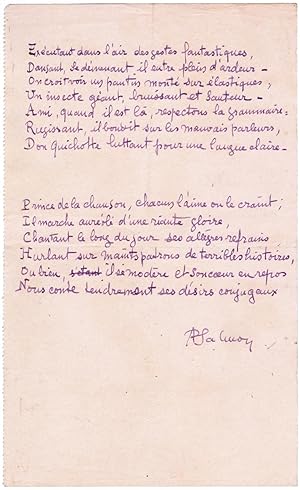 Exécutant dans l'air des gestes fantastiques,
Dansant, se démenant, il entre plein d'ardeur –
On croit voir un pantin monté sur élastiques,
Un insecte géant, bruissant et sauteur –
Ami, quand il est là, respectons la grammaire :
Rugissant, il bondit sur les mauvais parleurs,
Don Quichotte luttant pour une langue claire –
Prince de la chanson, chacun l'aime ou le craint ;
Il marche auréolé d'une riante gloire,
Chantant le long du jour ses allègres refrains
Hurlant sur maints patrons de terribles histoires,
Ou bien, il se modère et son coeur en repos
Nous conte tendrement ses désirs conjugaux